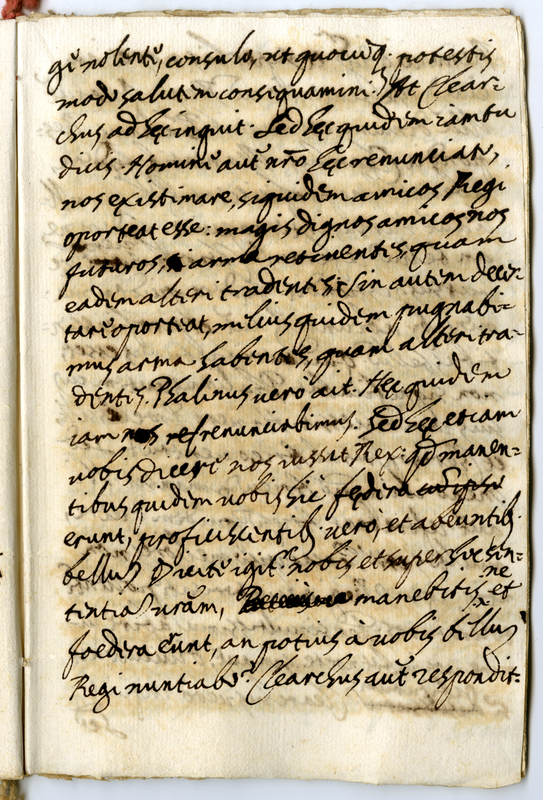 gē nolentē, consulo, ut quocūq; potestis
modo salutem consequamini. At Clear=
chus ad hęc inquit. Sed hęc quidem iam tu
dicis. Nomine aūt nrō hęc renunciat,
nos existimare, siquidem amicos Regi
oporteat esse: magis dignos amicos nos
futuros, si arma retinentes, quam
eadem alteri tradentes; Sin autem decer=
tare oporteat, melius quidem pugnabi=
mus arma habentes, quam alteri tra=
dentes. Phalinus verò ait. Hęc quidem
iam nos renunciabimus. Sed hęc etiam
vobis dicere nos iussit Rex: qd manen=
tibus quidem vobis hic fędera
erunt, proficiscentib; verò, et abeuntib;
bellū. Dicite igitr nobis et super hoc sen=
tentiā vrām, manebitis ne et
foedera erunt, an potius à vobis bellū
Regi nuntiabo? Clearchus aūt respondit=